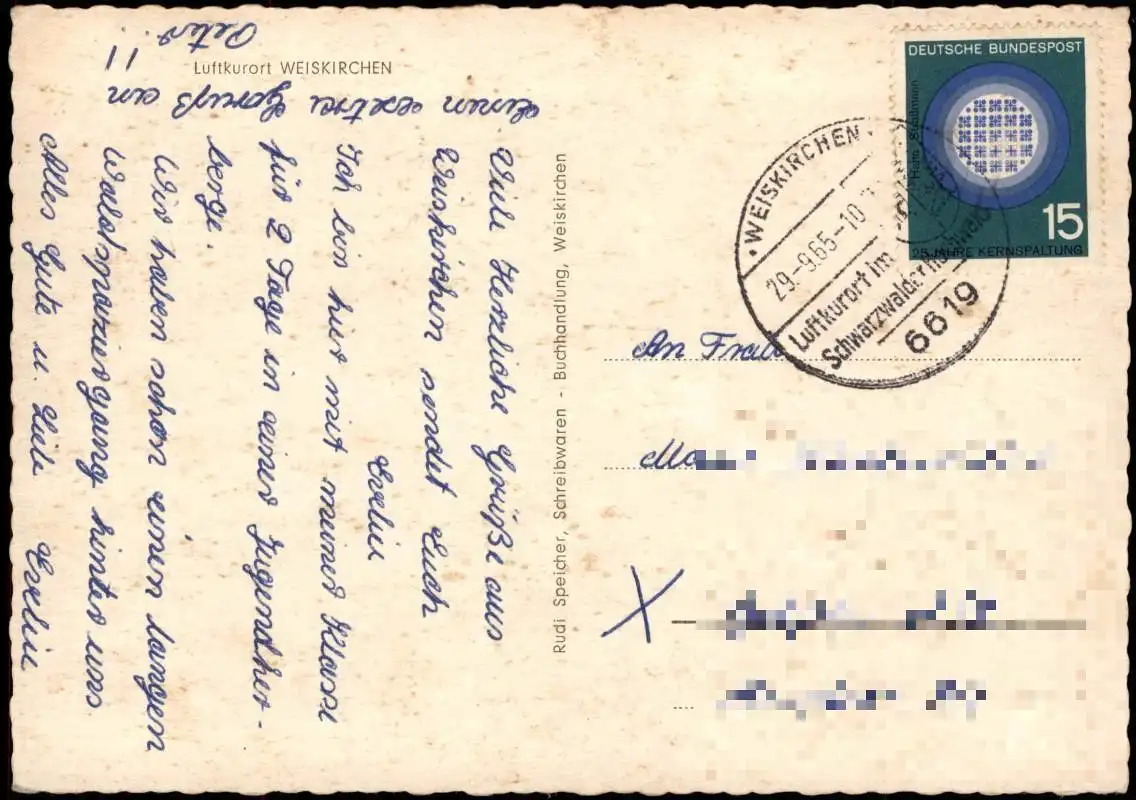 Luftkurort WEISKIRCHEN
Viele Herzliche Grüße aus
Weiskirchen sendet Euch
Evelin
Ich bin hier mit meiner Klasse
für 2 Tage in einer Jugendher-
berge.
Wir haben schon einen langen
Waldspaziergang hinter uns
Alles Gute u. Liebe Evelin
Einen extra Gruß an
Peter!!
Rudi Speicher, Schreibwaren - Buchhandlung, Weiskirchen
DEUTSCHE BUNDESPOST
15
25 JAHRE KERNSPALTUNG
WEISKIRCHEN
29.-9.65-10
Luftkurort im
Schwarzwälder Hochwald
6619
An Frau